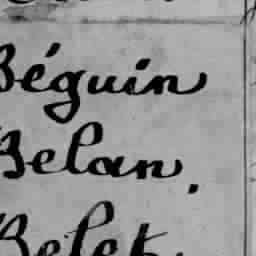 Béguin
Belan.
Belet.